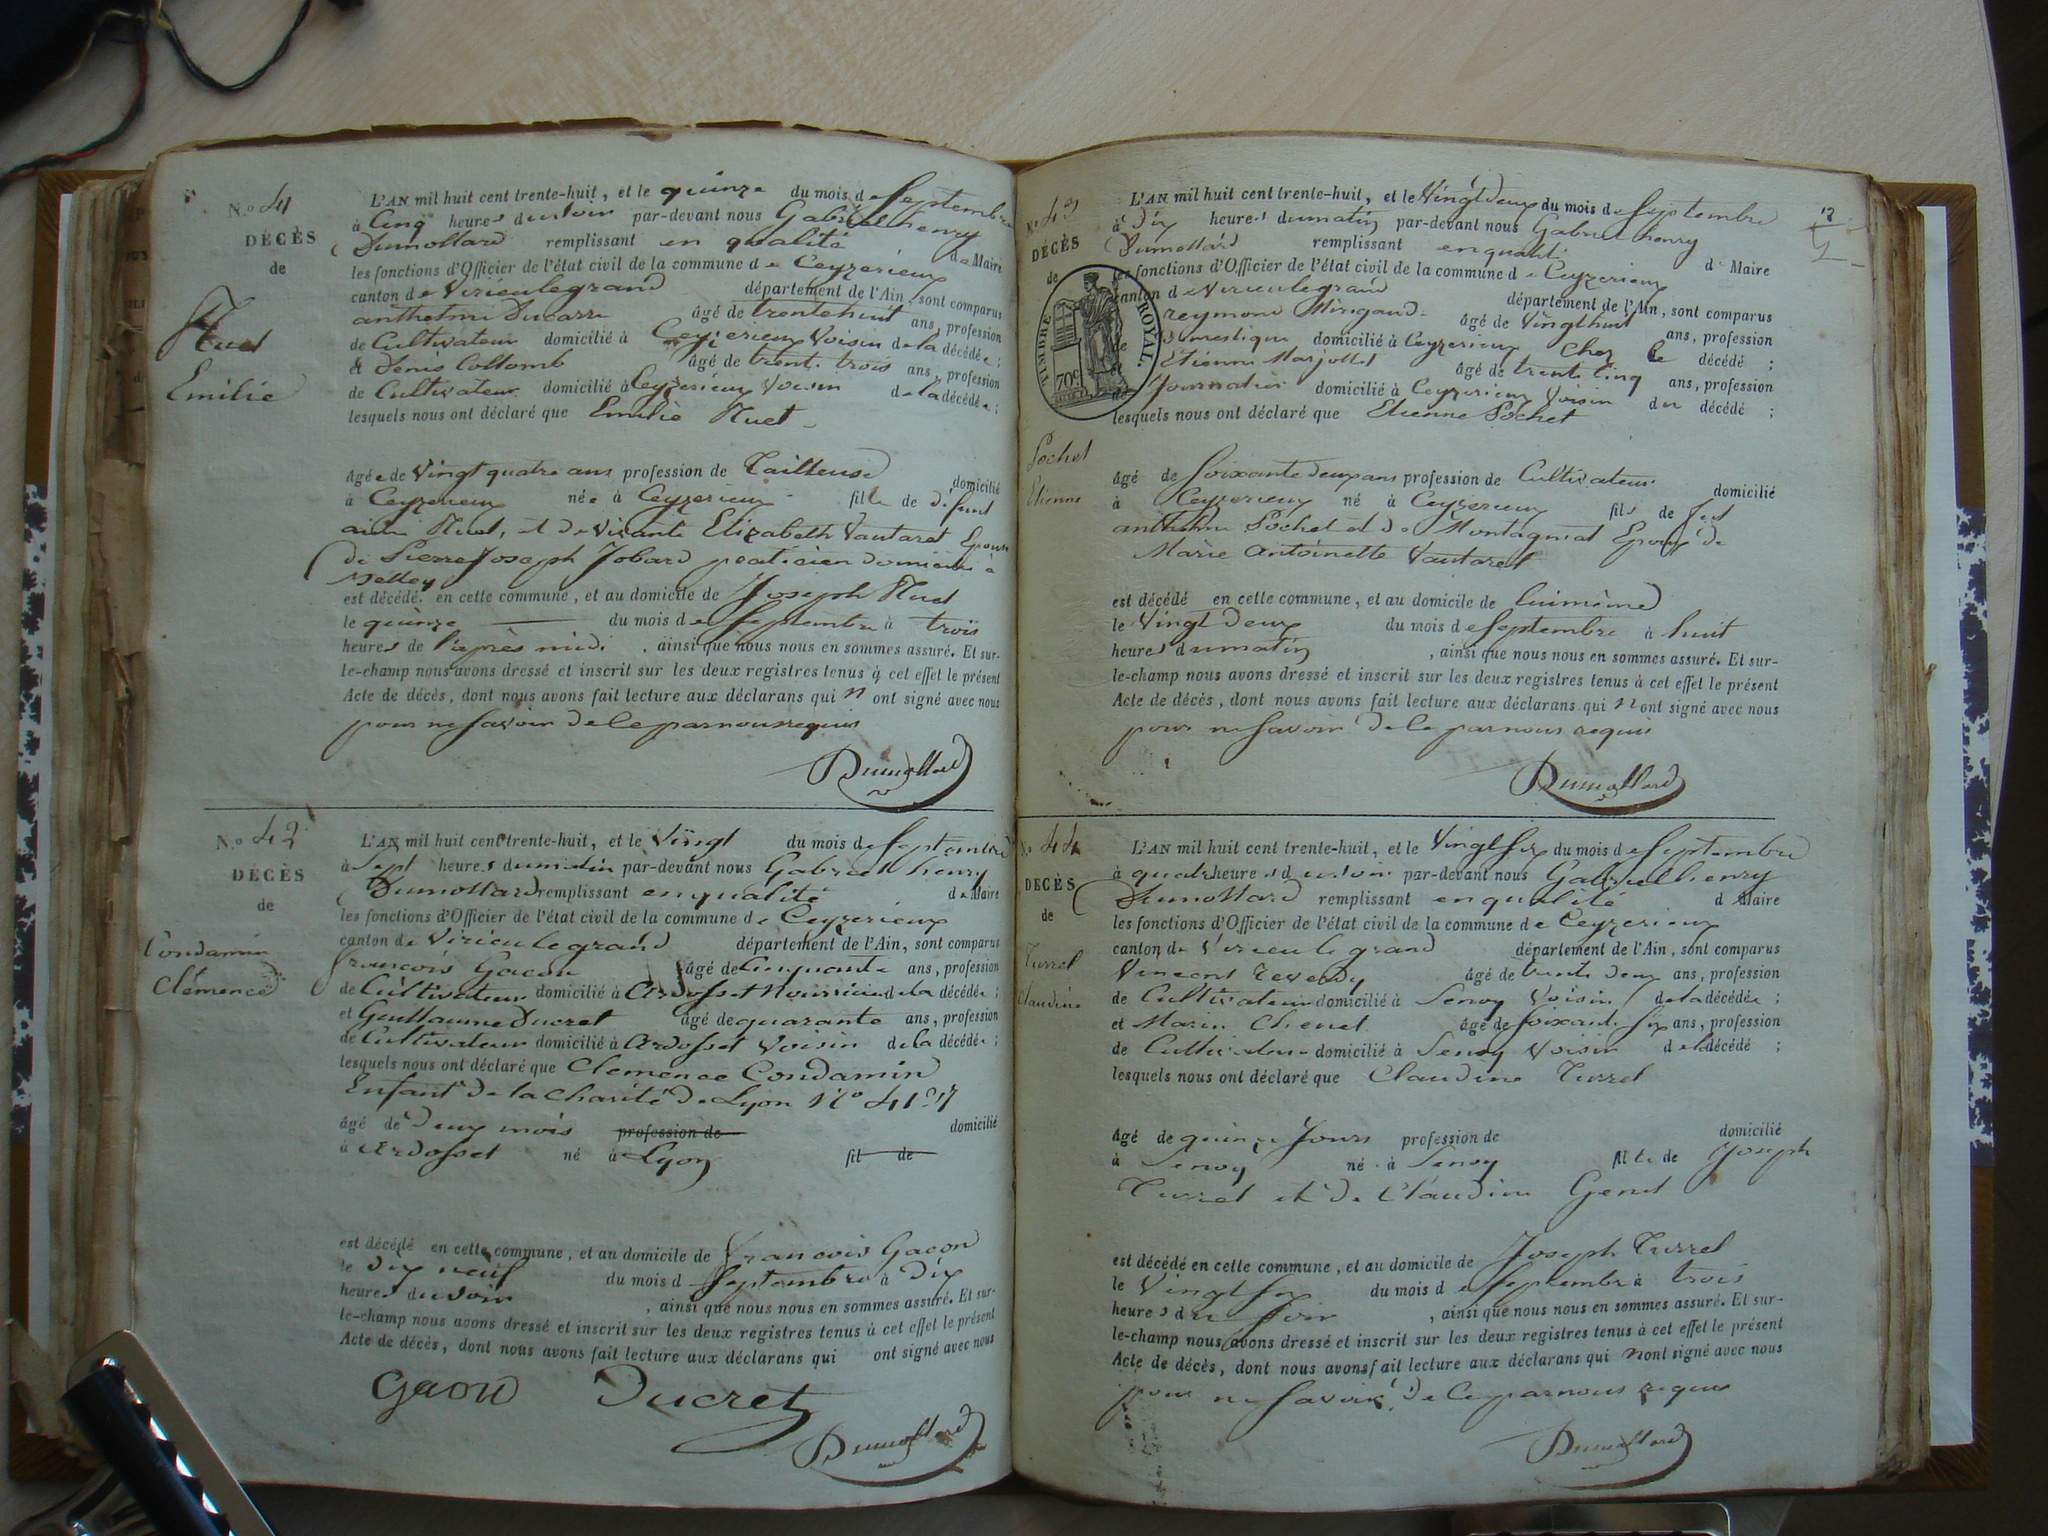 N.o 41
DÉCÈS
de
Nuet
Emilie
L'AN mil huit cent trente-huit, et le quinze du mois de Septembre
à Cinq heures du soir par-devant nous Gabriel henry
Dumollard remplissant en qualité de Maire
les fonctions d'Officier de l'état civil de la commune de Ceyzerieux
canton de Virieulegrand département de l'Ain, sont comparus
anthelme Ducarre âgé de trentehuit ans, profession
de Cultivateur domicilié à Ceyzerieux Voisin de la décédée ;
& Denis Collomb âgé de trente trois ans, profession
de Cultivateur domicilié à Ceyzerieux Voisin de la décédée ;
lesquels nous ont déclaré que Emilie Nuet
âgée de Vingt quatre ans profession de Tailleuse domicilié
à Ceyzerieux née à Ceyzerieux fille de défunt
aimé Nuet, et de Vivante Elizabeth Vautaret Epouse
de Pierre Joseph Jobard praticien domicilié à
Belley
est décédé en cette commune, et au domicile de Joseph Nuet
le quinze du mois de Septembre à trois
heures de l'après midi , ainsi que nous nous en sommes assuré. Et sur-
le-champ nous avons dressé et inscrit sur les deux registres tenus à cet effet le présent
Acte de décès, dont nous avons fait lecture aux déclarans qui n ont signé avec nous
pour ne Savoir de ce par nous requis
Dumollard
N.o 42
DÉCÈS
de
Condamin
Clémence
L'AN mil huit cent trente-huit, et le Vingt du mois de Septembre
à Sept heures du matin par-devant nous Gabriel henry
Dumollard remplissant en qualité de Maire
les fonctions d'Officier de l'état civil de la commune de Ceyzerieux
canton de Virieu le grand département de l'Ain, sont comparus
françois Gacon âgé de Cinquante ans, profession
de Cultivateur domicilié à Ardosset Nourricier de la décédée ;
et Guillaume Ducret âgé de quarante ans, profession
de Cultivateur domicilié à Ardosset Voisin de la décédée ;
lesquels nous ont déclaré que Clemence Condamin
Enfant de la Charité de Lyon No
âgé de Deux mois profession de domicilié
à Ardosset né à Lyon fil de
est décédé en cette commune, et au domicile de François Gacon
le Dix neuf du mois d Septembre à Dix
heures du soir , ainsi que nous nous en sommes assuré. Et sur-
le-champ nous avons dressé et inscrit sur les deux registres tenus à cet effet le présent
Acte de décès, dont nous avons fait lecture aux déclarans qui ont signé avec nous
Gacon Ducret
Dumollard
12
N.o 43
DÉCÈS
de
TIMBRE ROYAL.
70c
Pochet
Etienne
L'AN mil huit cent trente-huit, et le Vingt deux du mois de Septembre
à Dix heures du matin par-devant nous Gabriel henry
Dumollard remplissant en qualité d Maire
les fonctions d'Officier de l'état civil de la commune de Ceyzerieux
canton de Virieulegrand département de l'Ain, sont comparus
reymond Mingaud âgé de Vingt huit ans, profession
de Domestique domicilié à Ceyzerieux Chez le décédé ;
et Etienne Marjollet âgé de trente Cinq ans, profession
de Journalier domicilié à Ceyzerieux Voisin du décédé ;
lesquels nous ont déclaré que Etienne Pochet
âgé de Soixante deux ans profession de Cultivateur domicilié
à Ceyzerieux né à Ceyzerieux fils de feu
anthelme Pochet et de Montagnat Epoux de
Marie Antoinette Vautaret
est décédé en cette commune, et au domicile de luimême
le Vingt Deux du mois de Septembre à huit
heures du matin , ainsi que nous nous en sommes assuré. Et sur-
le-champ nous avons dressé et inscrit sur les deux registres tenus à cet effet le présent
Acte de décès, dont nous avons fait lecture aux déclarans qui n ont signé avec nous
pour ne Savoir de ce par nous requis
Dumollard
N.o 44
DÉCÈS
de
Turrel
Claudine
L'AN mil huit cent trente-huit, et le Vingt Six du mois de Septembre
à quatre heures du soir par-devant nous Gabriel henry
Dumollard remplissant en qualité d Maire
les fonctions d'Officier de l'état civil de la commune de Ceyzerieux
canton de Virieu le grand département de l'Ain, sont comparus
Vincent âgé de trente Deux ans, profession
de Cultivateur domicilié à Senoy Voisin de la décédée ;
et Marin Chenet âgé de Soixante Six ans, profession
de Cultivateur domicilié à Senoy Voisin de la décédé ;
lesquels nous ont déclaré que Claudine Turrel
âgé de quinze Jours profession de domicilié
à Senoy né à Senoy fille de Joseph
Turrel et de Claudine Genet
est décédé en cette commune, et au domicile de Joseph Turrel
le Vingt Six du mois de Septembre à trois
heures du Soir , ainsi que nous nous en sommes assuré. Et sur-
le-champ nous avons dressé et inscrit sur les deux registres tenus à cet effet le présent
Acte de décès, dont nous avons fait lecture aux déclarans qui n ont signé avec nous
pour ne Savoir de ce par nous requis
Dumollard